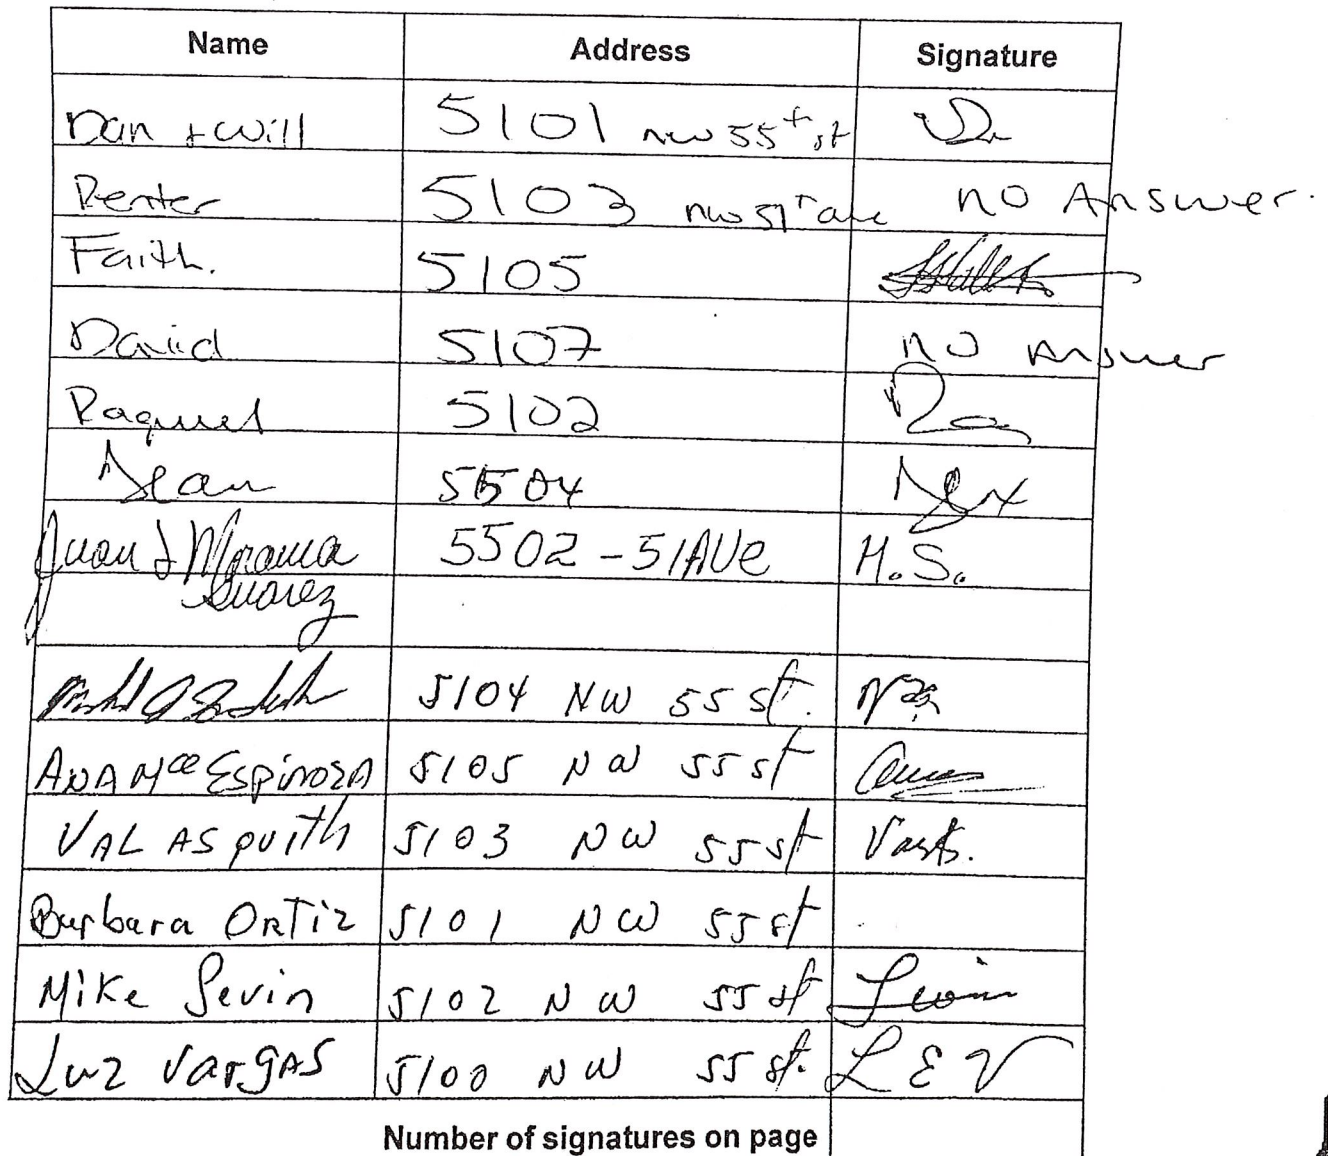 Name Address Signature
Dan + Will 5101 nw 55th st
Renter 5103 nw 51st ave no Answer.
Faith. 5105
David 5107 no Answer
Raquel 5102
Jean 5504
Juan & Suarez 5502 - 51AVe M.S.
5104 NW 55 st.
ANA Mª Espinoza 5105 NW 55 st
VAL ASquith 5103 NW 55 st
Barbara ORTiz 5101 NW 55 st
Mike Levin 5102 NW 55 st Levin
Luz Vargas 5100 NW 55 st. L E V
Number of signatures on page